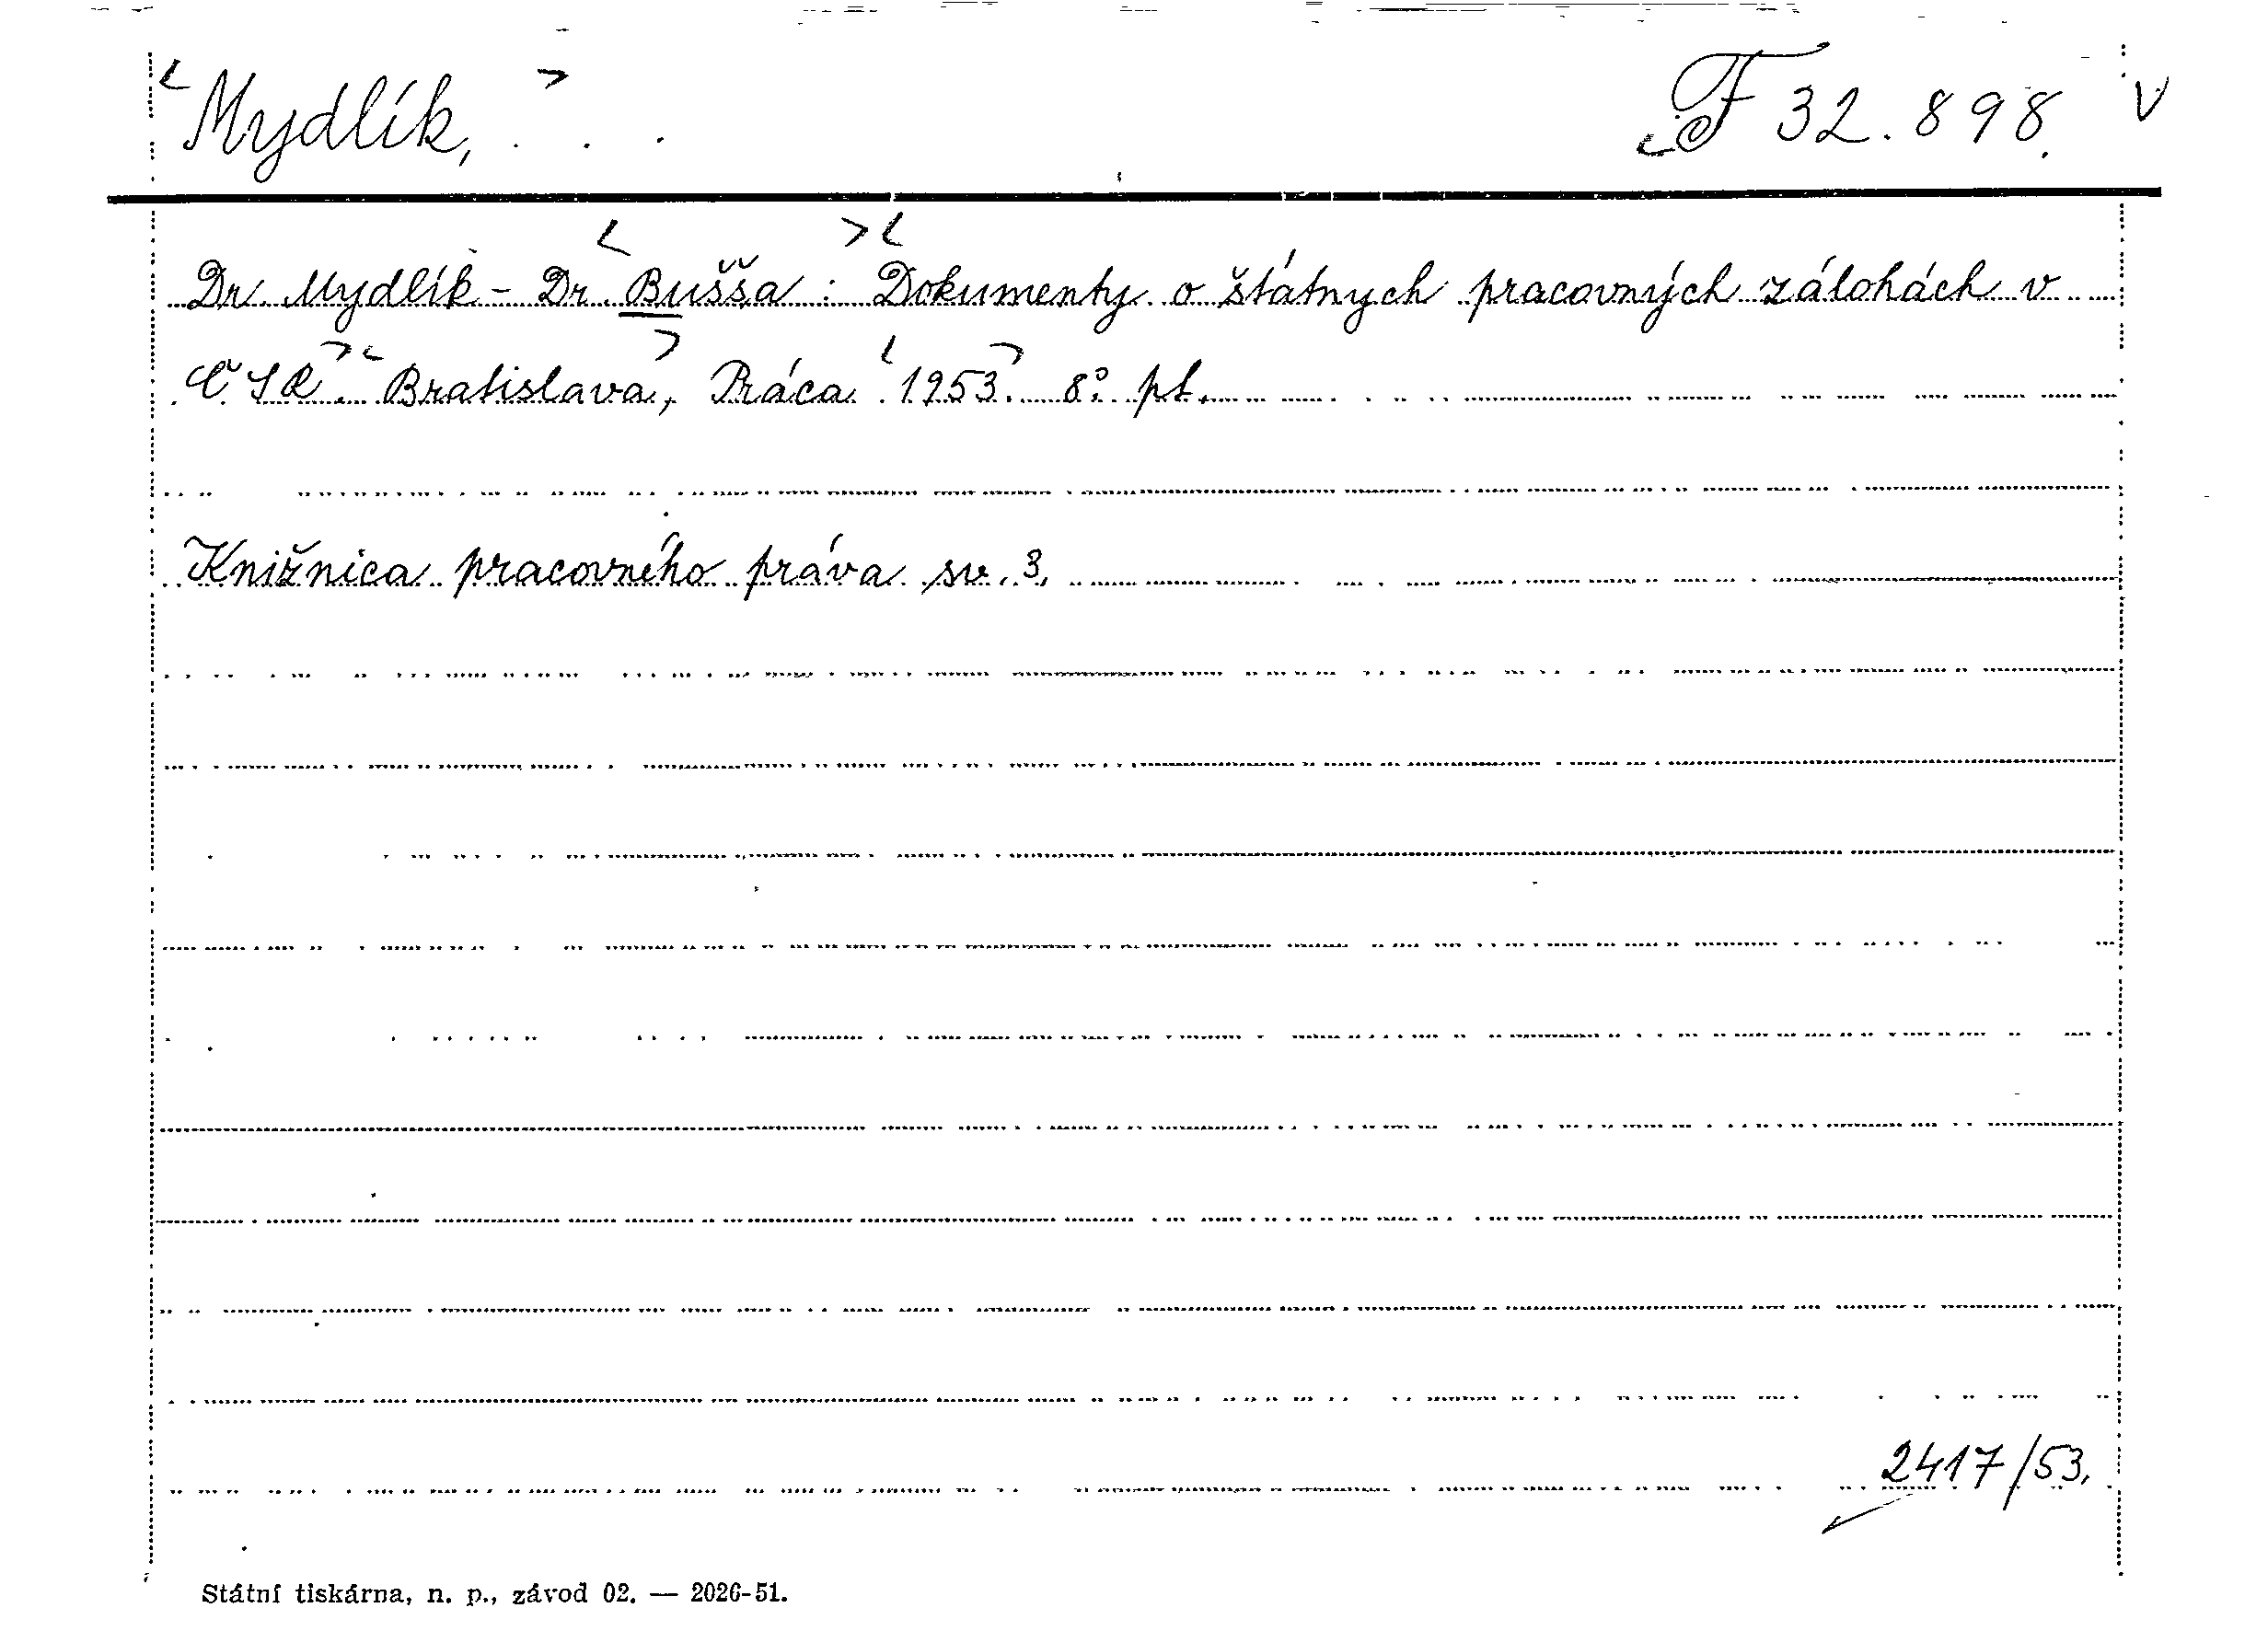 Mydlík, . . . F 32.898. V
Dr. Mydlík - Dr. Bušša : Dokumenty o štátnych pracovných zálohách v
ČSR. Bratislava, Práca 1953. 8°. pt.
Knižnica pracovného práva sv. 3.
2417/53.
Státní tiskárna, n. p., závod 02. — 2026-51.